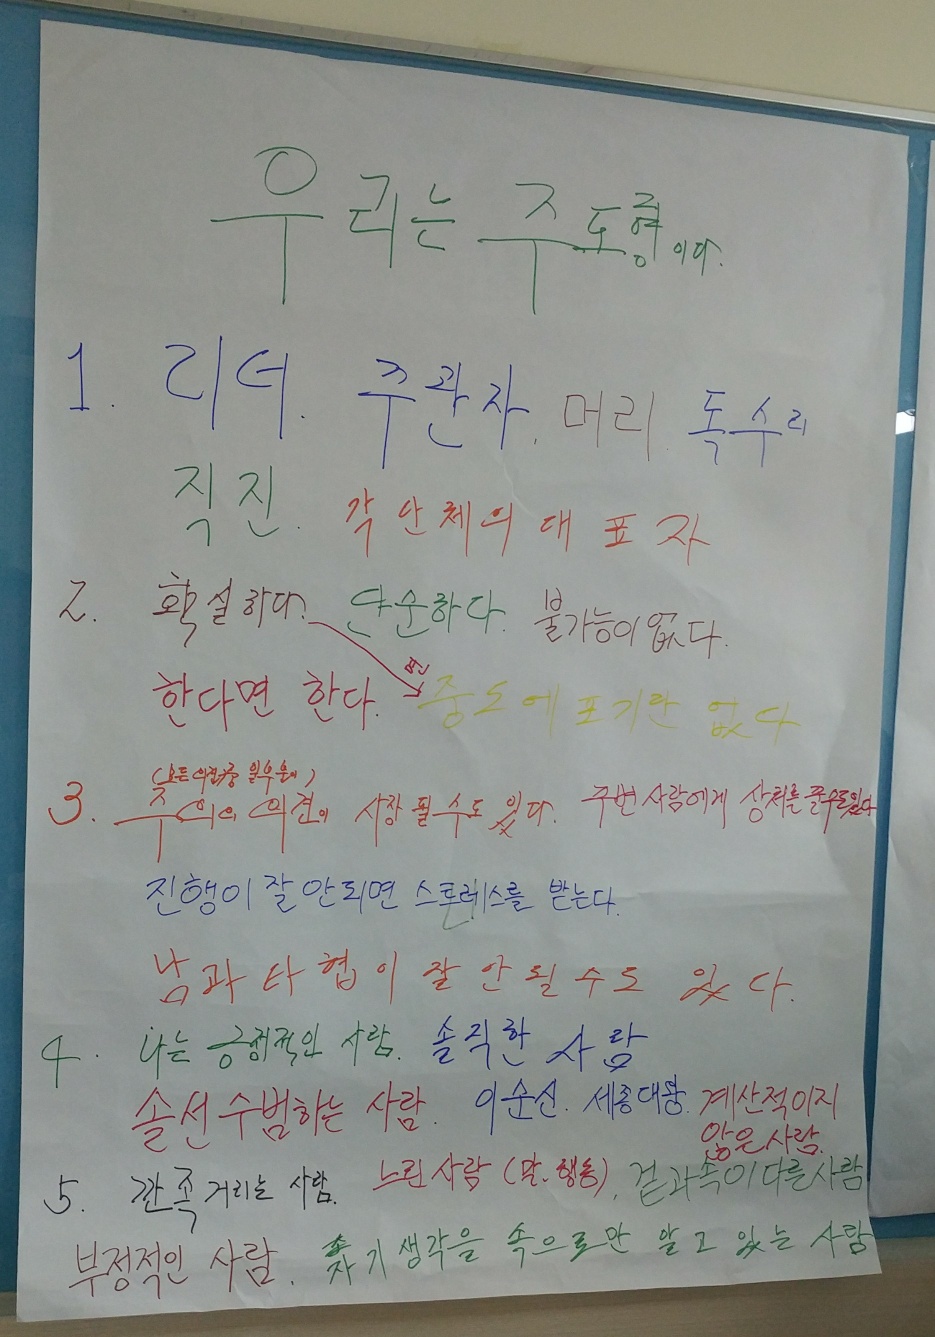 우리는 주도형이다.
1. 리더. 주관자. 머리 독수리
직진. 각 단체의 대표자
2. 확실하다. 단순하다. 불가능이 없다.
한다면 한다. 중도에 포기란 없다
(모든 의견중 일부분이)
3. 주의의 의견이 사장 될 수도 있다. 주변 사람에게 상처를 줄 수도 있다
진행이 잘 안되면 스트레스를 받는다.
남과 타협이 잘 안 될 수도 있다.
4. 나는 긍정적인 사람. 솔직한 사람
솔선수범하는 사람. 이순신. 세종대왕. 계산적이지
않은 사람.
5. 깐족거리는 사람. 느린 사람 (말. 행동). 겉과 속이 다른 사람
부정적인 사람. 자기 생각을 속으로만 알고 있는 사람